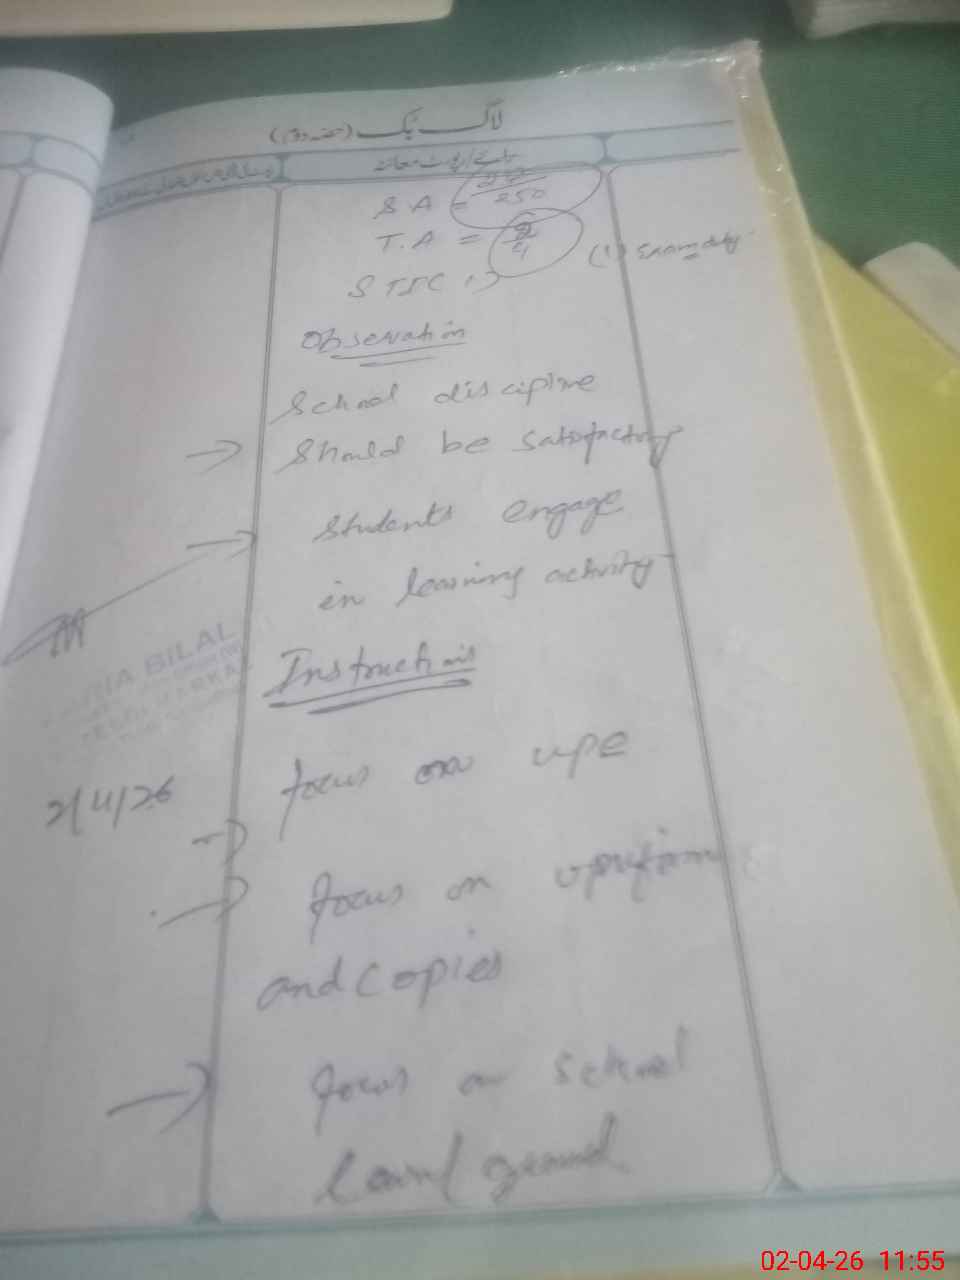 لاگ بک (حصہ دوئم)
رپورٹ معائنہ
S A = 250
T.A = 4
(1)
Observation
School discipline
→ Should be satisfactory
→ Students engage
in learning activity
BILAL
Instructions
2/4/26
focus on UPE
→
→ focus on uniform
and copies
→ focus on school
lawn/ground
02-04-26 11:55